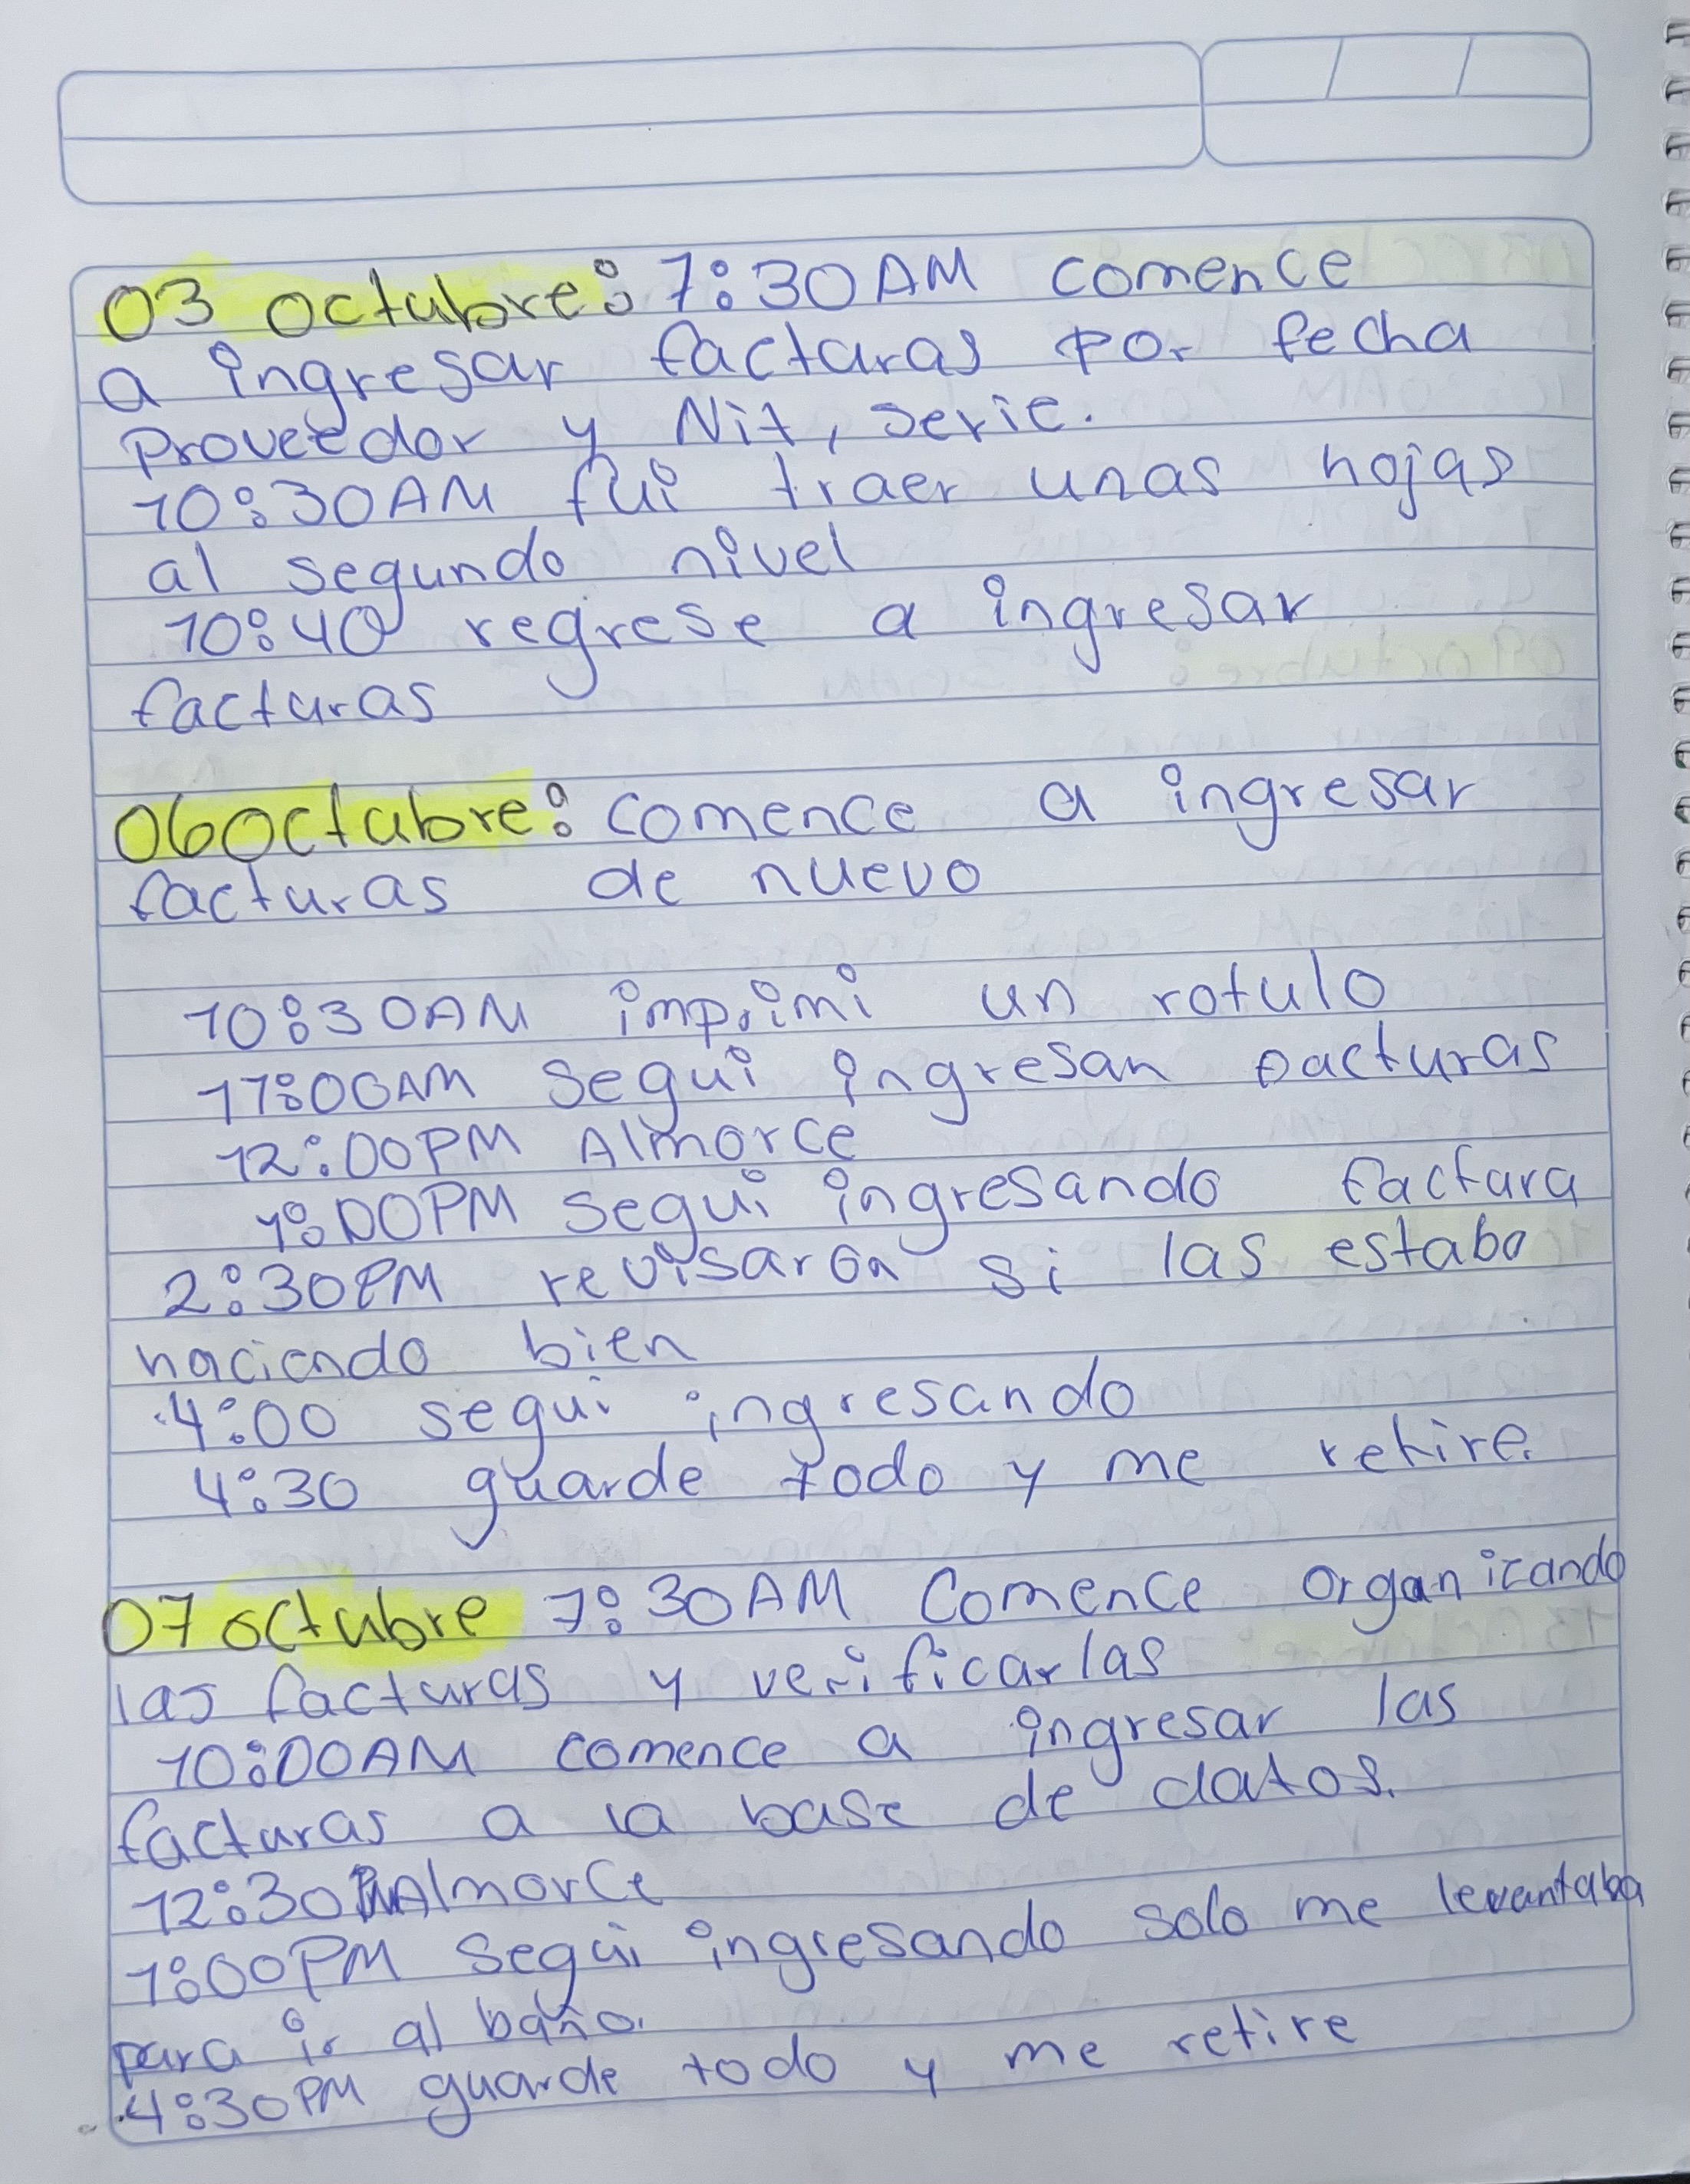 03 octubre: 7:30AM comence
a ingresar facturas por fecha
Proveedor y Nit, serie.
10:30AM fui traer unas hojas
al segundo nivel
10:40 regrese a ingresar
facturas
06 octubre: comence a ingresar
facturas de nuevo
10:30AM imprimi un rotulo
11:00AM segui ingresan facturas
12:00PM Almorce
1:00PM segui ingresando factura
2:30PM revisaron si las estaba
haciendo bien
4:00 segui ingresando
4:30 guarde todo y me retire.
07 octubre 7:30AM Comence organizando
las facturas y verificarlas
10:00AM comence a ingresar las
facturas a la base de datos.
12:30PM Almorce
1:00PM Segui ingresando solo me levantaba
para ir al baño.
4:30PM guarde todo y me retire